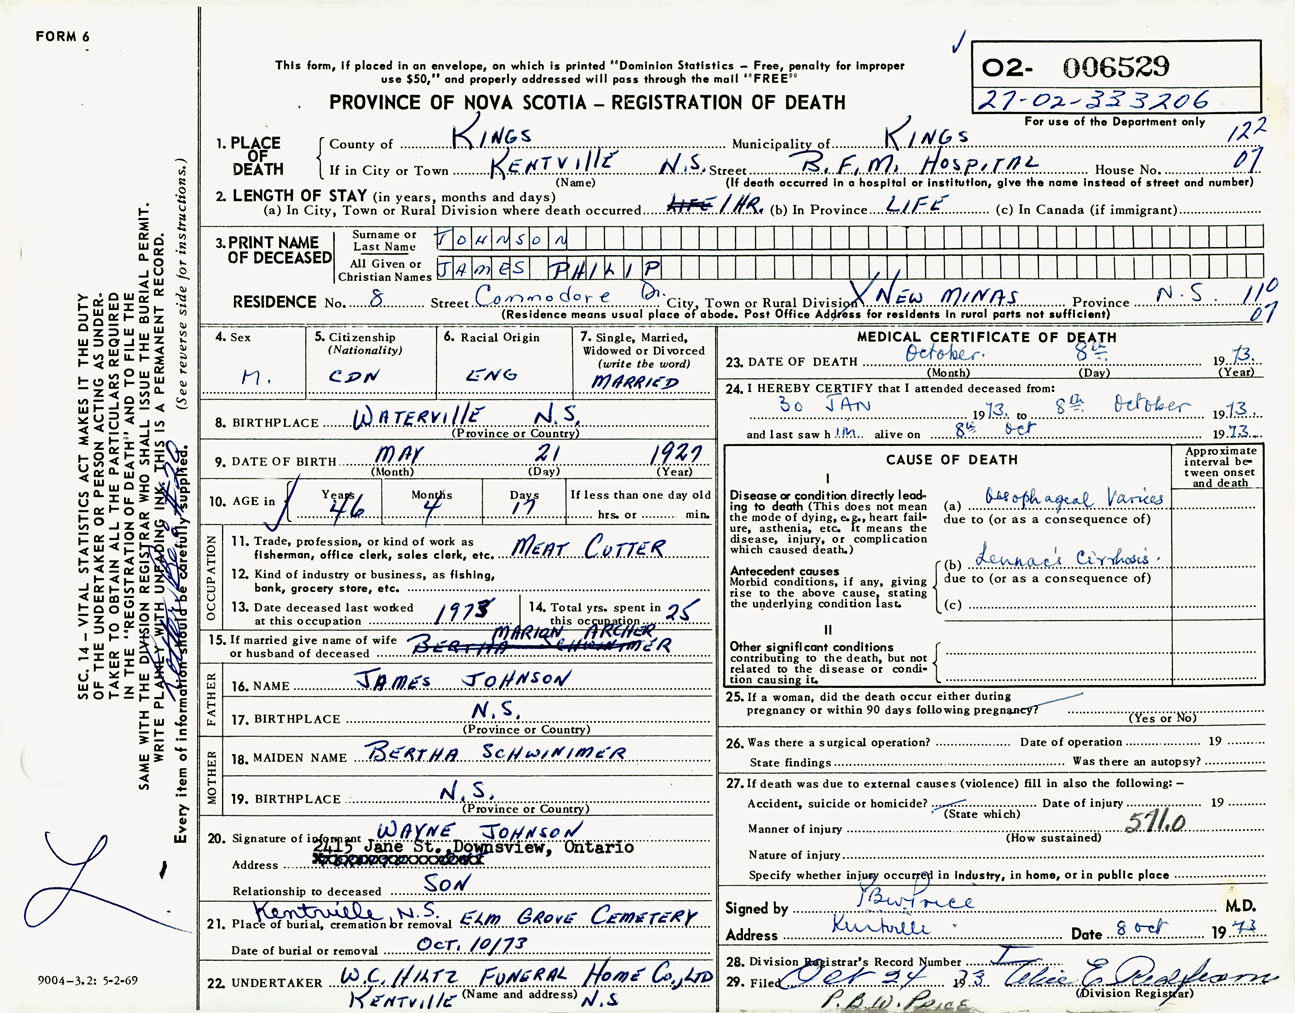 FORM 6
This form, if placed in an envelope, on which is printed "Dominion Statistics – Free, penalty for improper
use $50," and properly addressed will pass through the mail "FREE"
PROVINCE OF NOVA SCOTIA – REGISTRATION OF DEATH
O2- 006529
27-02-333206
For use of the Department only
1. PLACE OF DEATH
County of KINGS Municipality of KINGS 122
If in City or Town KENTVILLE N.S. Street B.F.M. HOSPITAL House No. 07
(Name) (If death occurred in a hospital or institution, give the name instead of street and number)
2. LENGTH OF STAY (in years, months and days)
(a) In City, Town or Rural Division where death occurred LIFE 1 HR. (b) In Province LIFE (c) In Canada (if immigrant)
3. PRINT NAME OF DECEASED
Surname or Last Name JOHNSON
All Given or Christian Names JAMES PHILIP
RESIDENCE No. 8 Street Commodore Dr. City, Town or Rural Division X NEW MINAS Province N.S. 110
(Residence means usual place of abode. Post Office Address for residents in rural parts not sufficient) 07
4. Sex M.
5. Citizenship (Nationality) CDN
6. Racial Origin ENG
7. Single, Married, Widowed or Divorced (write the word) MARRIED
8. BIRTHPLACE WATERVILLE N.S.
(Province or Country)
9. DATE OF BIRTH MAY 21 1927
(Month) (Day) (Year)
10. AGE in Years 46 Months 4 Days 17 If less than one day old hrs. or min.
OCCUPATION
11. Trade, profession, or kind of work as fisherman, office clerk, sales clerk, etc. MEAT CUTTER
12. Kind of industry or business, as fishing, bank, grocery store, etc.
13. Date deceased last worked at this occupation 1973
14. Total yrs. spent in this occupation 25
15. If married give name of wife or husband of deceased MARION ARCHER
BERTHA SCHWINIMER
FATHER
16. NAME JAMES JOHNSON
17. BIRTHPLACE N.S.
(Province or Country)
MOTHER
18. MAIDEN NAME BERTHA SCHWINIMER
19. BIRTHPLACE N.S.
(Province or Country)
20. Signature of informant WAYNE JOHNSON
Address 2415 Jane St., Downsview, Ontario
Relationship to deceased SON
21. Place of burial, cremation or removal Kentville, N.S. ELM GROVE CEMETERY
Date of burial or removal OCT. 10/73
22. UNDERTAKER W.C. HILTZ FUNERAL HOME CO., LTD
(Name and address) KENTVILLE N.S
MEDICAL CERTIFICATE OF DEATH
23. DATE OF DEATH October 8th 1973
(Month) (Day) (Year)
24. I HEREBY CERTIFY that I attended deceased from:
30 JAN 1973 to 8th October 1973
and last saw h IM alive on 8th Oct 1973
CAUSE OF DEATH
Approximate interval between onset and death
I
Disease or condition directly leading to death (This does not mean the mode of dying, e.g., heart failure, asthenia, etc. It means the disease, injury, or complication which caused death.)
(a) Oesophageal Varices
due to (or as a consequence of)
Antecedent causes
Morbid conditions, if any, giving rise to the above cause, stating the underlying condition last.
(b) Lennac's Cirrhosis
due to (or as a consequence of)
(c)
II
Other significant conditions contributing to the death, but not related to the disease or condition causing it.
25. If a woman, did the death occur either during pregnancy or within 90 days following pregnancy?
(Yes or No)
26. Was there a surgical operation? Date of operation 19
State findings Was there an autopsy?
27. If death was due to external causes (violence) fill in also the following: –
Accident, suicide or homicide? Date of injury 19
(State which)
Manner of injury 571.0
(How sustained)
Nature of injury
Specify whether injury occurred in Industry, in home, or in public place
Signed by PBWPrice M.D.
Address Kentville Date 8 oct 1973
28. Division Registrar's Record Number
29. Filed Oct 24 1973
(Division Registrar)
P.B.W. PRICE
SEC. 14 – VITAL STATISTICS ACT MAKES IT THE DUTY
OF THE UNDERTAKER OR PERSON ACTING AS UNDER-
TAKER TO OBTAIN ALL THE PARTICULARS REQUIRED
IN THE "REGISTRATION OF DEATH" AND TO FILE THE
SAME WITH THE DIVISION REGISTRAR WHO SHALL ISSUE THE BURIAL PERMIT.
WRITE PLAINLY WITH UNFADING INK. THIS IS A PERMANENT RECORD.
Every item of information should be carefully supplied. (See reverse side for instructions.)
9004-3.2: 5-2-69